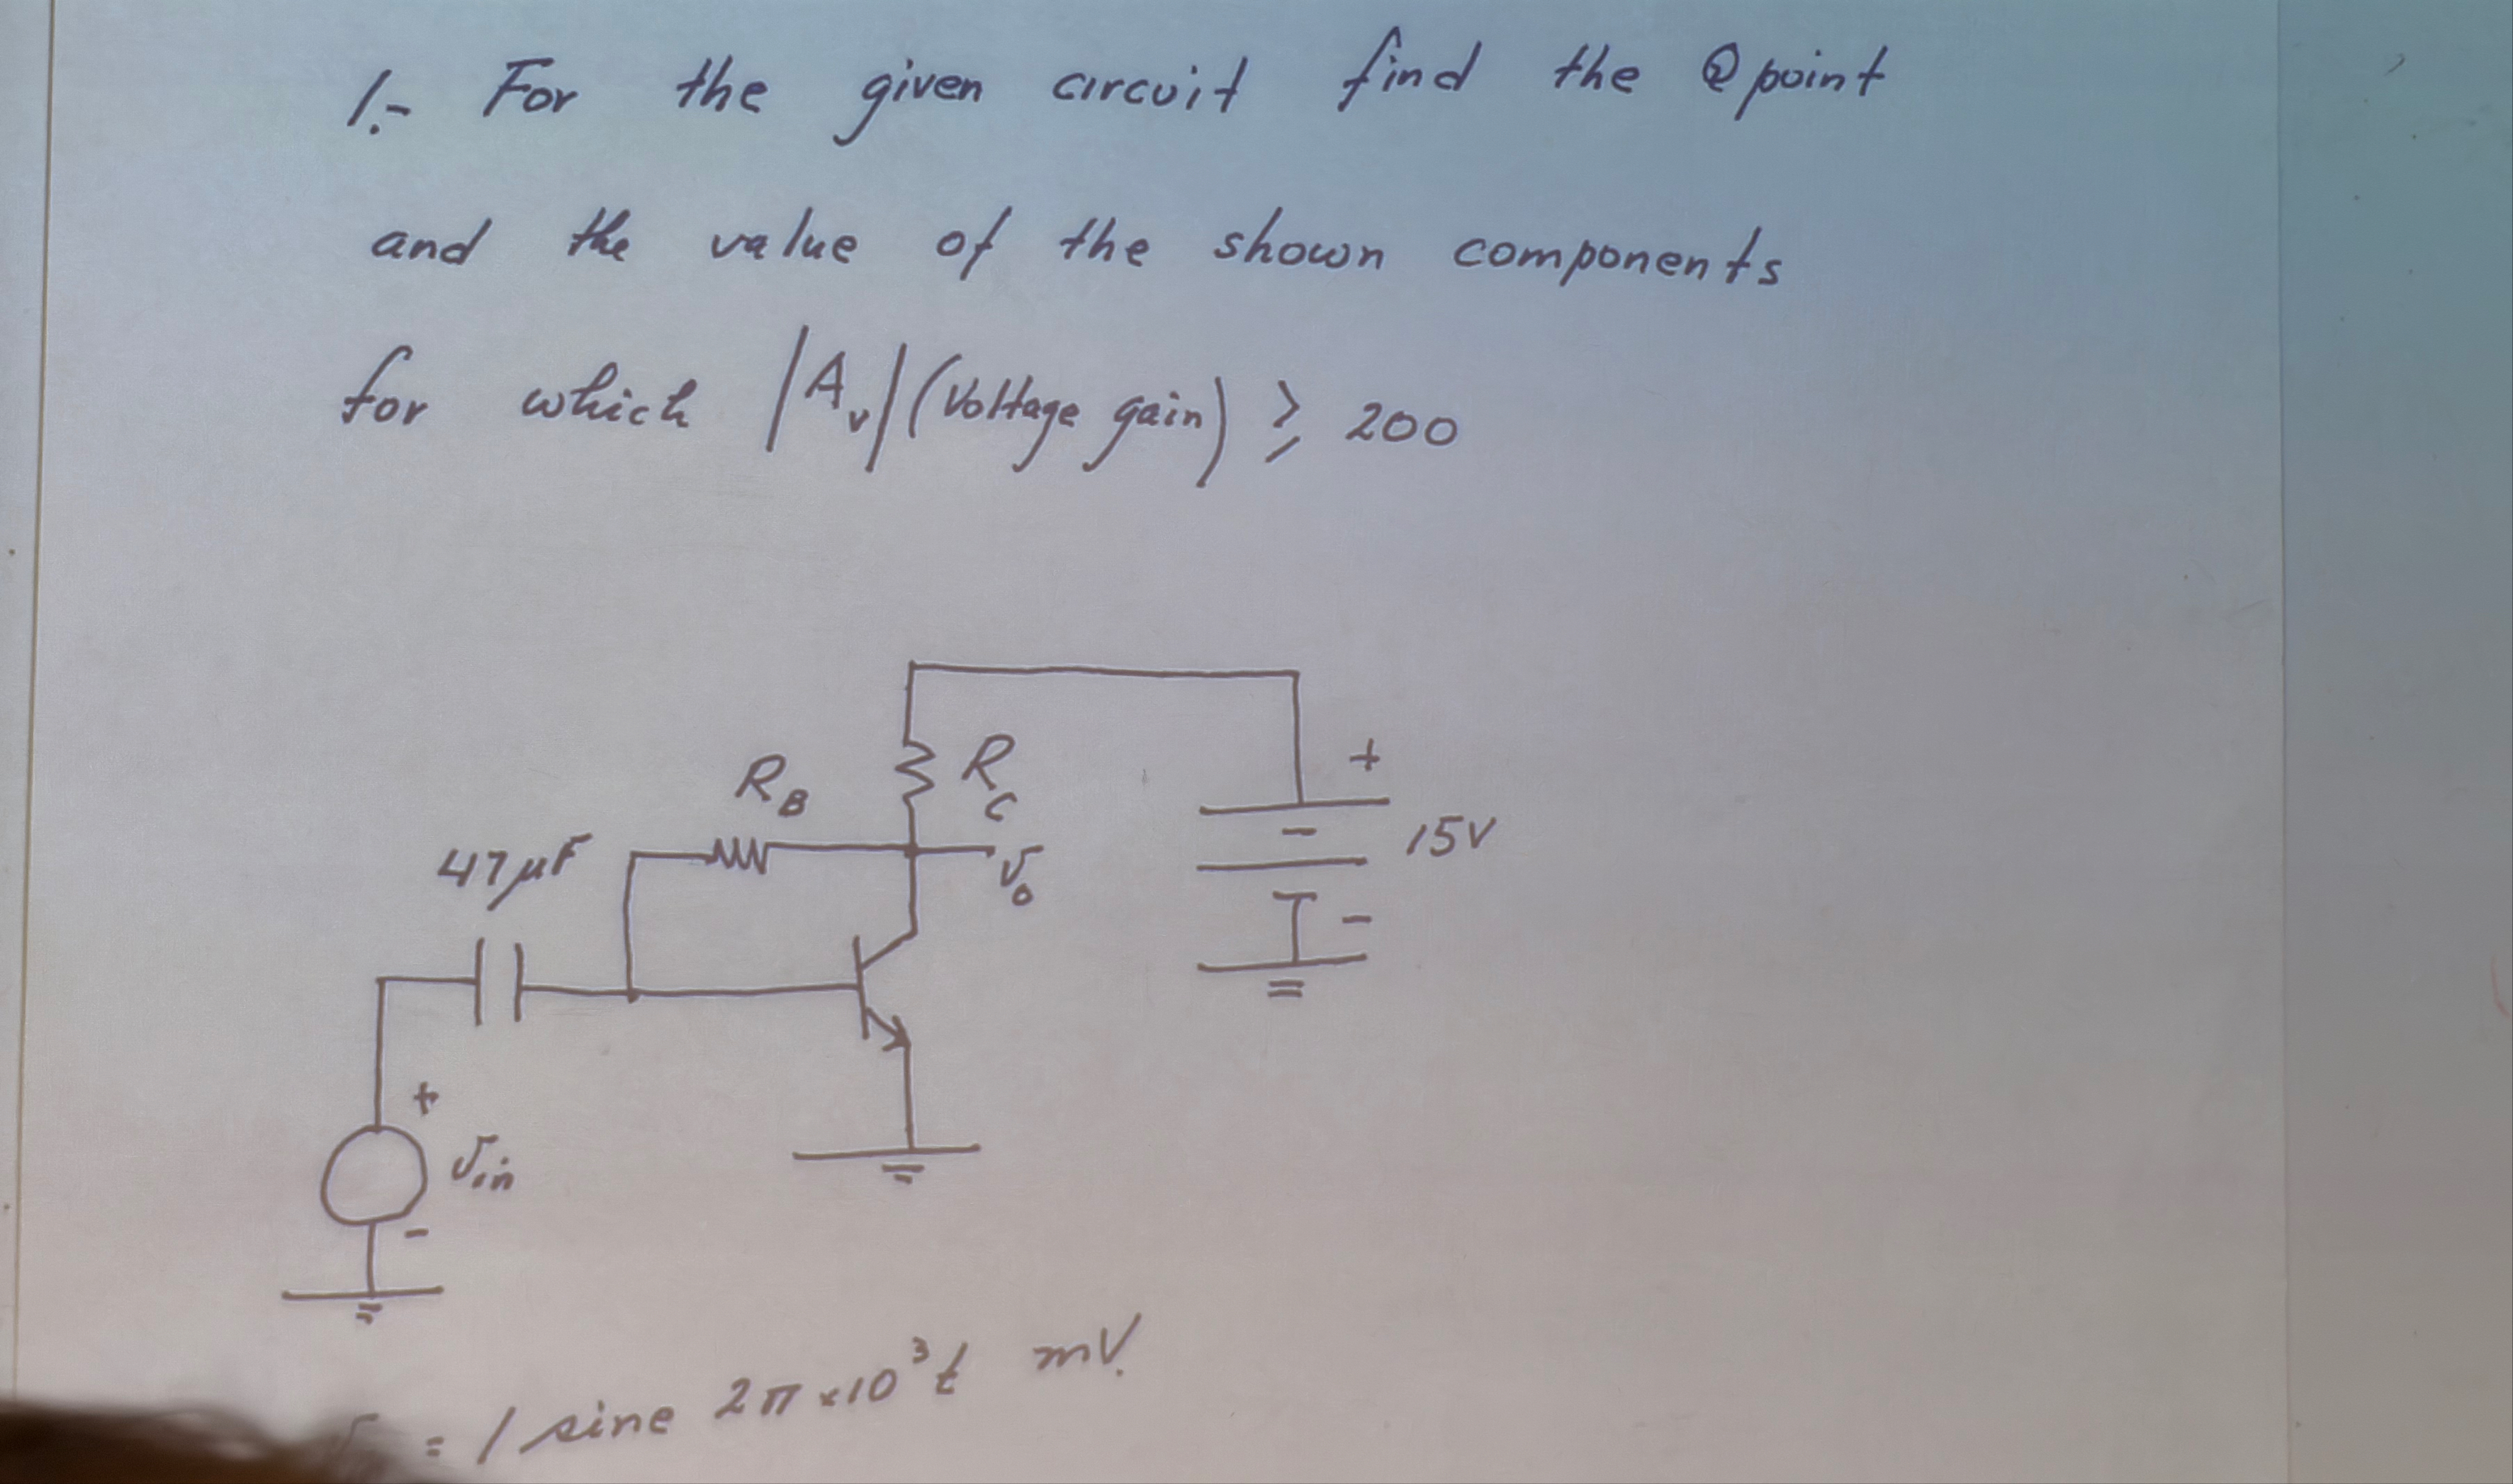 1.- For the given circuit find the Q point
and the value of the shown components
for which |Av| (Voltage gain) ≥ 200
RB
RC
+
47 μF
vo
15V
-
+
vin
-
= 1 sine 2π×10³t mV.